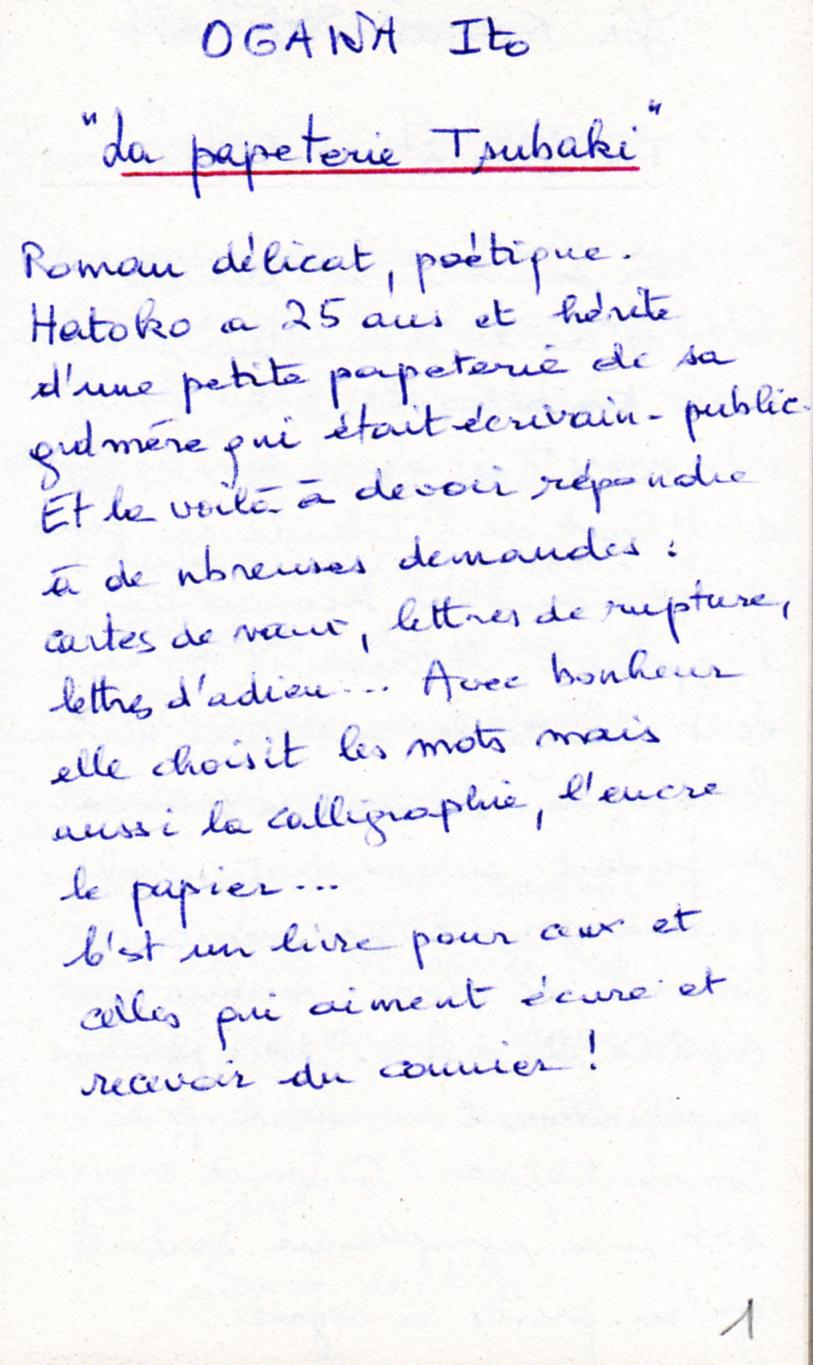 OGAWA Ito
"La papeterie Tsubaki"
Roman délicat, poétique.
Hatoko a 25 ans et hérite
d'une petite papeterie de sa
gdmère qui était écrivain-public.
Et la voilà à devoir répondre
à de nbreuses demandes :
cartes de vœux, lettres de rupture,
lettres d'adieu... Avec bonheur
elle choisit les mots mais
aussi la calligraphie, l'encre
le papier...
C'est un livre pour ceux et
celles qui aiment écrire et
recevoir du courrier !
1